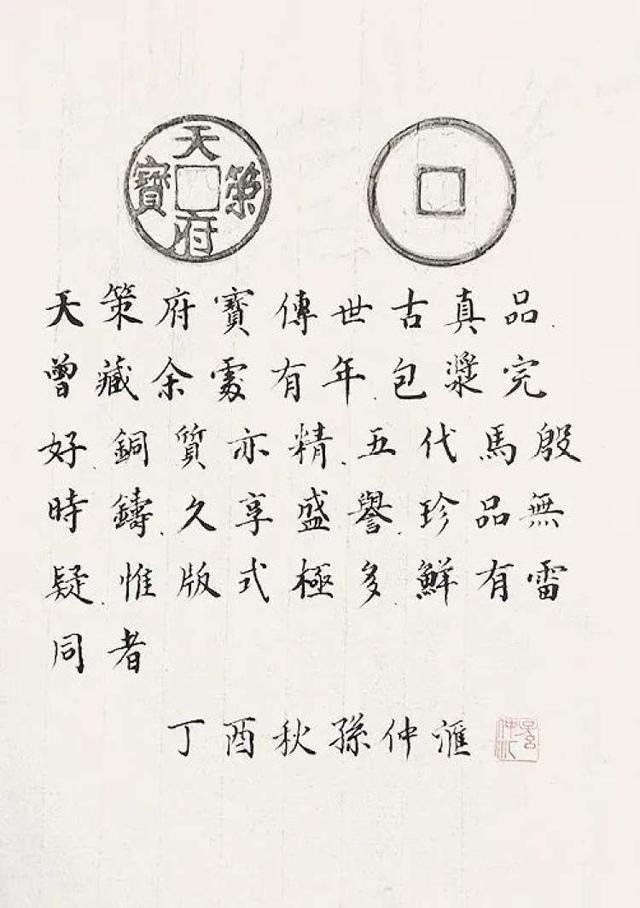 天策府寶
天策府寶傳世古真品.
曾藏余處有年.包漿完
好.銅質亦精.五代馬殷
時鑄.久享盛譽.珍品無
疑.惟版式極多.鮮有雷
同者
丁酉秋孫仲滙
孫仲汇